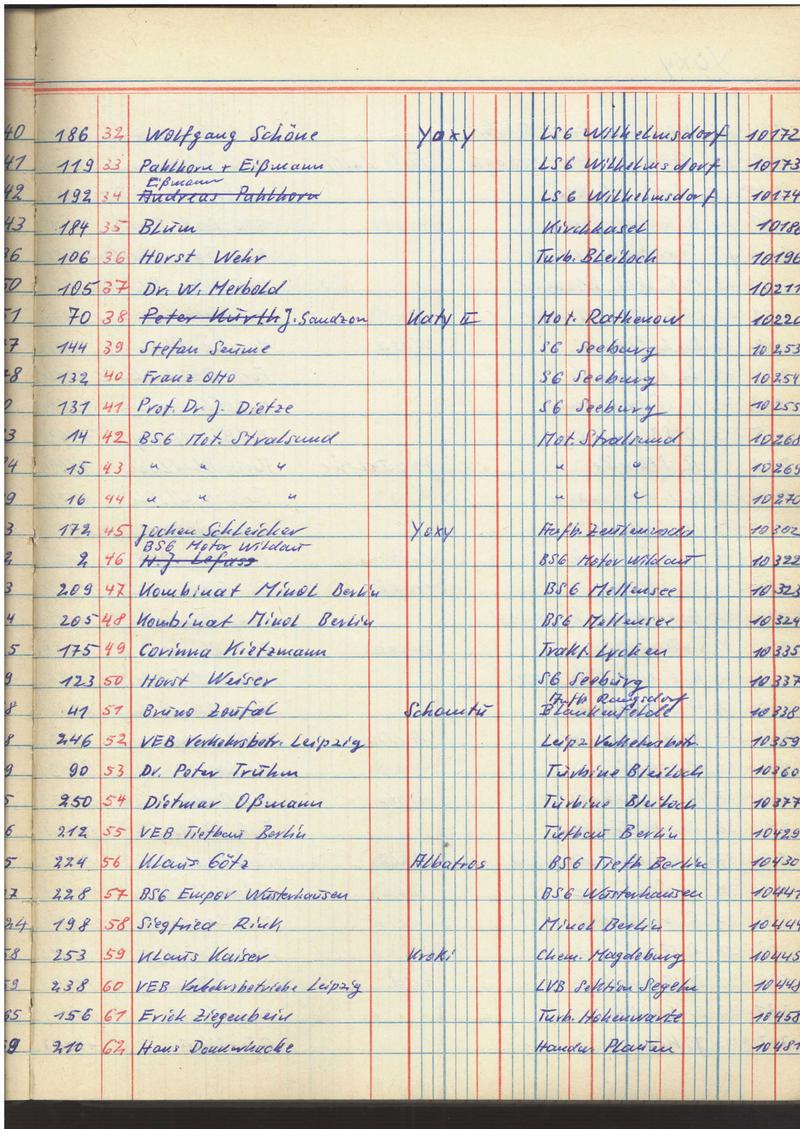 40 186 32 Wolfgang Schöne Yoxy LSG Wilhelmsdorf 10172
41 119 33 Pahlhorn + Eißmann LSG Wilhelmsdorf 10173
Eißmann
42 192 34 Andreas Pahlhorn LSG Wilhelmsdorf 10174
43 184 35 Blum Kirchhasel 1018
36 106 36 Horst Wehr Turb. Bleiloch 10196
50 105 37 Dr. W. Merbold 10211
51 70 38 Peter Kurth J. Sandzon Katy II Mot. Rathenow 10220
7 144 39 Stefan Seume SG Seeburg 10253
8 132 40 Franz Otto SG Seeburg 10254
131 41 Prof. Dr. J. Dietze SG Seeburg 10255
3 14 42 BSG Mot. Stralsund Mot. Stralsund 10268
4 15 43 " " " " " 10269
9 16 44 " " " " " 10270
3 172 45 Jochen Schleicher Yoxy Aufb. Zeulenroda 10302
BSG Motor Wildau
2 2 46 H.J. BSG Motor Wildau 10322
3 209 47 Kombinat Minol Berlin BSG Mellensee 10323
4 205 48 Kombinat Minol Berlin BSG Mellensee 10324
5 175 49 Corinna Kietzmann Trakt. Lychen 10335
9 123 50 Horst Weiser SG Seeburg 10337
Aufb. Rangsdorf
8 41 51 Bruno Zoufal Schomtü Blankenfelde 10338
8 246 52 VEB Verkehrsbetr. Leipzig Leipz Verkehrsbetr. 10359
9 90 53 Dr. Peter Trühm Turbine Bleiloch 10360
5 250 54 Dietmar Oßmann Turbine Bleiloch 10377
6 212 55 VEB Tiefbau Berlin Tiefbau Berlin 10429
5 224 56 Klaus Götz Albatros BSG Tiefb Berlin 10430
7 228 57 BSG Empor Wusterhausen BSG Wusterhausen 10441
24 198 58 Siegfried Rink Minol Berlin 10444
58 253 59 Klaus Kaiser Kroki Chem. Magdeburg 10445
59 238 60 VEB Verkehrsbetriebe Leipzig LVB Sektion Segeln 10448
65 156 61 Erich Ziegenbein Turb. Hohenwarte 10458
9 210 62 Hans Donnerhacke Handw. Plauen 10481